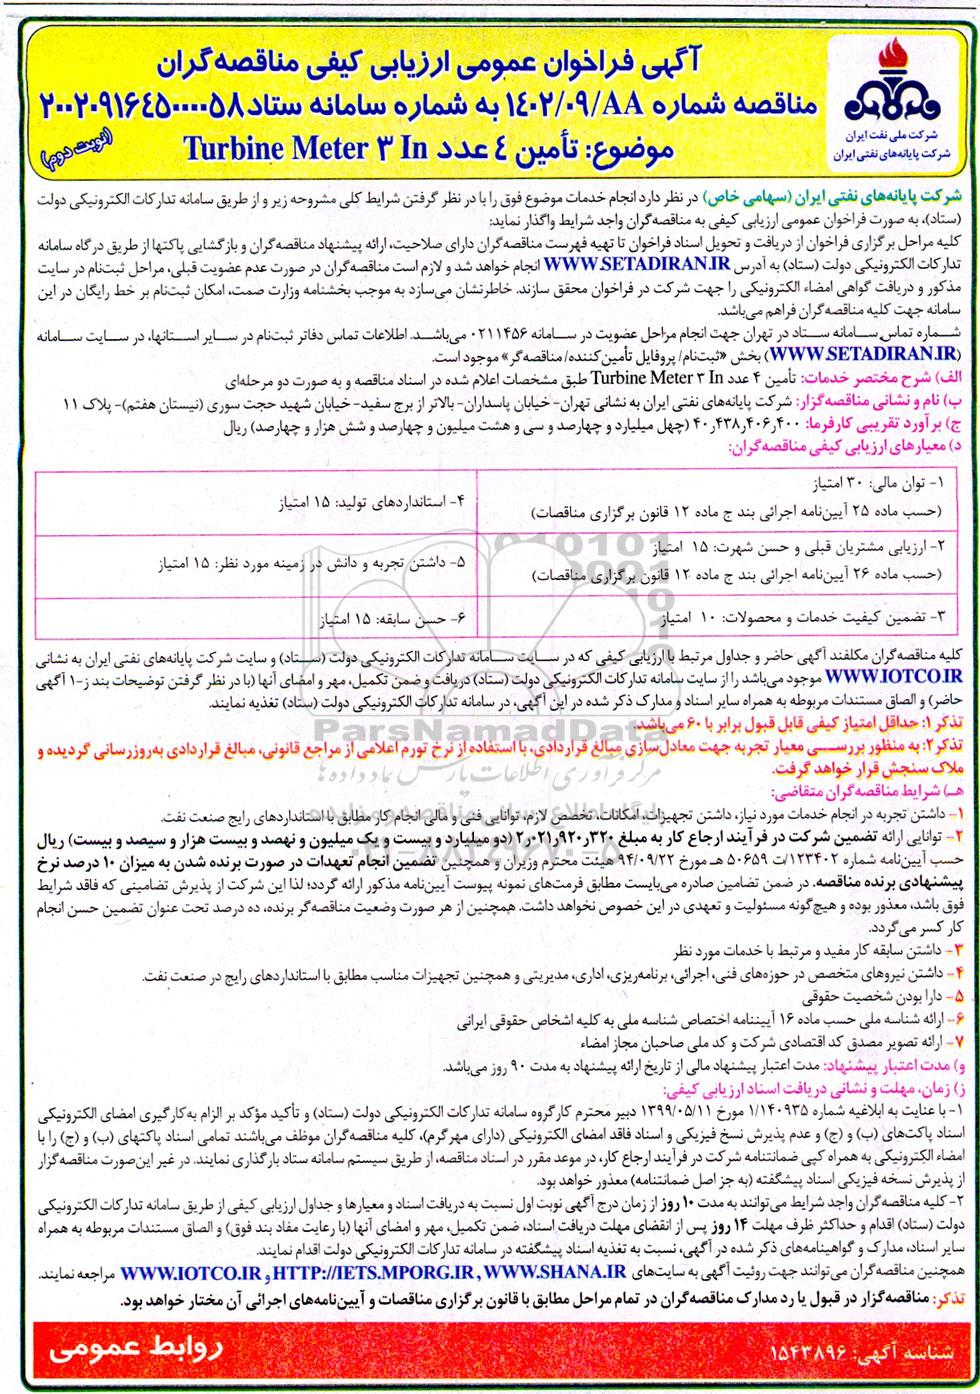 آگهی فراخوان عمومی ارزیابی کیفی مناقصه‌گران
مناقصه شماره ۱۴۰۲/۰۹/AA به شماره سامانه ستاد ۲۰۰۲۰۹۱۶۴۵۰۰۰۰۵۸
موضوع: تأمین ۴ عدد Turbine Meter ۳ In
(نوبت دوم)
شرکت ملی نفت ایران
شرکت پایانه‌های نفتی ایران
شرکت پایانه‌های نفتی ایران (سهامی خاص) در نظر دارد انجام خدمات موضوع فوق را با در نظر گرفتن شرایط کلی مشروحه زیر و از طریق سامانه تدارکات الکترونیکی دولت
(ستاد)، به صورت فراخوان عمومی ارزیابی کیفی به مناقصه‌گران واجد شرایط واگذار نماید:
کلیه مراحل برگزاری فراخوان از دریافت و تحویل اسناد فراخوان تا تهیه فهرست مناقصه‌گران دارای صلاحیت، ارائه پیشنهاد مناقصه‌گران و بازگشایی پاکتها از طریق درگاه سامانه
تدارکات الکترونیکی دولت (ستاد) به آدرس WWW.SETADIRAN.IR انجام خواهد شد و لازم است مناقصه‌گران در صورت عدم عضویت قبلی، مراحل ثبت‌نام در سایت
مذکور و دریافت گواهی امضاء الکترونیکی را جهت شرکت در فراخوان محقق سازند. خاطرنشان می‌سازد به موجب بخشنامه وزارت صمت، امکان ثبت‌نام بر خط رایگان در این
سامانه جهت کلیه مناقصه‌گران فراهم می‌باشد.
شماره تماس سامانه ستاد در تهران جهت انجام مراحل عضویت در سامانه ۰۲۱۱۴۵۶ می‌باشد. اطلاعات تماس دفاتر ثبت‌نام در سایر استانها، در سایت سامانه
(WWW.SETADIRAN.IR) بخش «ثبت‌نام/ پروفایل تأمین‌کننده/ مناقصه‌گر» موجود است.
الف) شرح مختصر خدمات: تأمین ۴ عدد Turbine Meter ۳ In طبق مشخصات اعلام شده در اسناد مناقصه و به صورت دو مرحله‌ای
ب) نام و نشانی مناقصه‌گزار: شرکت پایانه‌های نفتی ایران به نشانی تهران- خیابان پاسداران- بالاتر از برج سفید- خیابان شهید حجت سوری (نیستان هفتم)- پلاک ۱۱
ج) برآورد تقریبی کارفرما: ۴۰٫۴۳۸٫۴۰۶٫۴۰۰ (چهل میلیارد و چهارصد و سی و هشت میلیون و چهارصد و شش هزار و چهارصد) ریال
د) معیارهای ارزیابی کیفی مناقصه‌گران:
۱- توان مالی: ۳۰ امتیاز
(حسب ماده ۲۵ آیین‌نامه اجرائی بند ج ماده ۱۲ قانون برگزاری مناقصات)
۴- استانداردهای تولید: ۱۵ امتیاز
۲- ارزیابی مشتریان قبلی و حسن شهرت: ۱۵ امتیاز
(حسب ماده ۲۶ آیین‌نامه اجرائی بند ج ماده ۱۲ قانون برگزاری مناقصات)
۵- داشتن تجربه و دانش در زمینه مورد نظر: ۱۵ امتیاز
۳- تضمین کیفیت خدمات و محصولات: ۱۰ امتیاز
۶- حسن سابقه: ۱۵ امتیاز
کلیه مناقصه‌گران مکلفند آگهی حاضر و جداول مرتبط با ارزیابی کیفی که در سایت سامانه تدارکات الکترونیکی دولت (ستاد) و سایت شرکت پایانه‌های نفتی ایران به نشانی
WWW.IOTCO.IR موجود می‌باشد را از سایت سامانه تدارکات الکترونیکی دولت (ستاد) دریافت و ضمن تکمیل، مهر و امضای آنها (با در نظر گرفتن توضیحات بند ز-۱ آگهی
حاضر) و الصاق مستندات مربوطه به همراه سایر اسناد و مدارک ذکر شده در این آگهی، در سامانه تدارکات الکترونیکی دولت (ستاد) تغذیه نمایند.
تذکر ۱: حداقل امتیاز کیفی قابل قبول برابر با ۶۰ می‌باشد.
تذکر۲: به منظور بررسی معیار تجربه جهت معادل‌سازی مبالغ قراردادی، با استفاده از نرخ تورم اعلامی از مراجع قانونی، مبالغ قراردادی به‌روزرسانی گردیده و
ملاک سنجش قرار خواهد گرفت.
هـ) شرایط مناقصه‌گران متقاضی:
۱- داشتن تجربه در انجام خدمات مورد نیاز، داشتن تجهیزات، امکانات، تخصص لازم، توانایی فنی و مالی انجام کار مطابق با استانداردهای رایج صنعت نفت.
۲- توانایی ارائه تضمین شرکت در فرآیند ارجاع کار به مبلغ ۲٫۰۲۱٫۹۲۰٫۳۲۰ (دو میلیارد و بیست و یک میلیون و نهصد و بیست هزار و سیصد و بیست) ریال
حسب آیین‌نامه شماره ۱۲۳۴۰۲/ت ۵۰۶۵۹ هـ مورخ ۹۴/۰۹/۲۲ هیئت محترم وزیران و همچنین تضمین انجام تعهدات در صورت برنده شدن به میزان ۱۰ درصد نرخ
پیشنهادی برنده مناقصه. در ضمن تضامین صادره می‌بایست مطابق فرمت‌های نمونه پیوست آیین‌نامه مذکور ارائه گردد؛ لذا این شرکت از پذیرش تضامینی که فاقد شرایط
فوق باشد، معذور بوده و هیچ‌گونه مسئولیت و تعهدی در این خصوص نخواهد داشت. همچنین از هر صورت وضعیت مناقصه‌گر برنده، ده درصد تحت عنوان تضمین حسن انجام
کار کسر می‌گردد.
۳- داشتن سابقه کار مفید و مرتبط با خدمات مورد نظر
۴- داشتن نیروهای متخصص در حوزه‌های فنی، اجرائی، برنامه‌ریزی، اداری، مدیریتی و همچنین تجهیزات مناسب مطابق با استانداردهای رایج در صنعت نفت.
۵- دارا بودن شخصیت حقوقی
۶- ارائه شناسه ملی حسب ماده ۱۶ آییننامه اختصاص شناسه ملی به کلیه اشخاص حقوقی ایرانی
۷- ارائه تصویر مصدق کد اقتصادی شرکت و کد ملی صاحبان مجاز امضاء
و) مدت اعتبار پیشنهاد: مدت اعتبار پیشنهاد مالی از تاریخ ارائه پیشنهاد به مدت ۹۰ روز می‌باشد.
ز) زمان، مهلت و نشانی دریافت اسناد ارزیابی کیفی:
۱- با عنایت به ابلاغیه شماره ۱/۱۴۰۹۳۵ مورخ ۱۳۹۹/۰۵/۱۱ دبیر محترم کارگروه سامانه تدارکات الکترونیکی دولت (ستاد) و تأکید مؤکد بر الزام به‌کارگیری امضای الکترونیکی
اسناد پاکت‌های (ب) و (ج) و عدم پذیرش نسخ فیزیکی و اسناد فاقد امضای الکترونیکی (دارای مهر گرم)، کلیه مناقصه‌گران موظف می‌باشند تمامی اسناد پاکتهای (ب) و (ج) را با
امضاء الکترونیکی به همراه کپی ضمانتنامه شرکت در فرآیند ارجاع کار، در موعد مقرر در اسناد مناقصه، از طریق سیستم سامانه ستاد بارگذاری نمایند. در غیر این‌صورت مناقصه‌گزار
از پذیرش نسخه فیزیکی اسناد پیشگفته (به جز اصل ضمانتنامه) معذور خواهد بود.
۲- کلیه مناقصه‌گران واجد شرایط می‌توانند به مدت ۱۰ روز از زمان درج آگهی نوبت اول نسبت به دریافت اسناد و معیارها و جداول ارزیابی کیفی از طریق سامانه تدارکات الکترونیکی
دولت (ستاد) اقدام و حداکثر ظرف مهلت ۱۴ روز پس از انقضای مهلت دریافت اسناد، ضمن تکمیل، مهر و امضای آنها (با رعایت مفاد بند فوق) و الصاق مستندات مربوطه به همراه
سایر اسناد، مدارک و گواهینامه‌های ذکر شده در آگهی، نسبت به تغذیه اسناد پیشگفته در سامانه تدارکات الکترونیکی دولت اقدام نمایند.
همچنین مناقصه‌گران می‌توانند جهت روئیت آگهی به سایت‌های HTTP://IETS.MPORG.IR , WWW.SHANA.IR و WWW.IOTCO.IR مراجعه نمایند.
تذکر: مناقصه‌گزار در قبول یا رد مدارک مناقصه‌گران در تمام مراحل مطابق با قانون برگزاری مناقصات و آیین‌نامه‌های اجرائی آن مختار خواهد بود.
شناسه آگهی: ۱۵۴۳۸۹۶
روابط عمومی
ParsNamadData